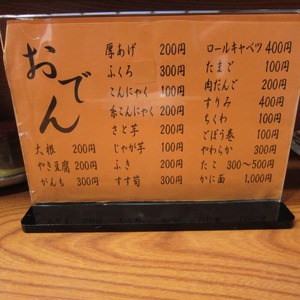 おでん
大根 200円
やき豆腐 200円
がんも 300円
厚あげ 200円
ふくろ 300円
こんにゃく 100円
糸こんにゃく 200円
さと芋 200円
じゃが芋 100円
ふき 200円
すす筍 300円
ロールキャベツ 400円
たまご 100円
肉だんご 200円
すりみ 400円
ちくわ 100円
ごぼう巻 100円
やわらか 300円
たこ 300〜500円
かに面 1,000円